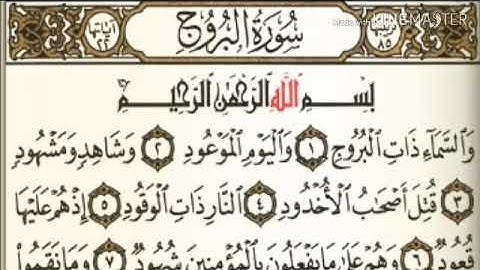 ترتيبها ٨٥ سُورَةُ الْبُرُوجِ آياتها ٢٢
Made with KINEMASTER
بِسْمِ اللَّهِ الرَّحْمَٰنِ الرَّحِيمِ
وَالسَّمَاءِ ذَاتِ الْبُرُوجِ ١ وَالْيَوْمِ الْمَوْعُودِ ٢ وَشَاهِدٍ وَمَشْهُودٍ
٣ قُتِلَ أَصْحَابُ الْأُخْدُودِ ٤ النَّارِ ذَاتِ الْوَقُودِ ٥ إِذْ هُمْ عَلَيْهَا
قُعُودٌ ٦ وَهُمْ عَلَىٰ مَا يَفْعَلُونَ بِالْمُؤْمِنِينَ شُهُودٌ ٧ وَمَا نَقَمُوا